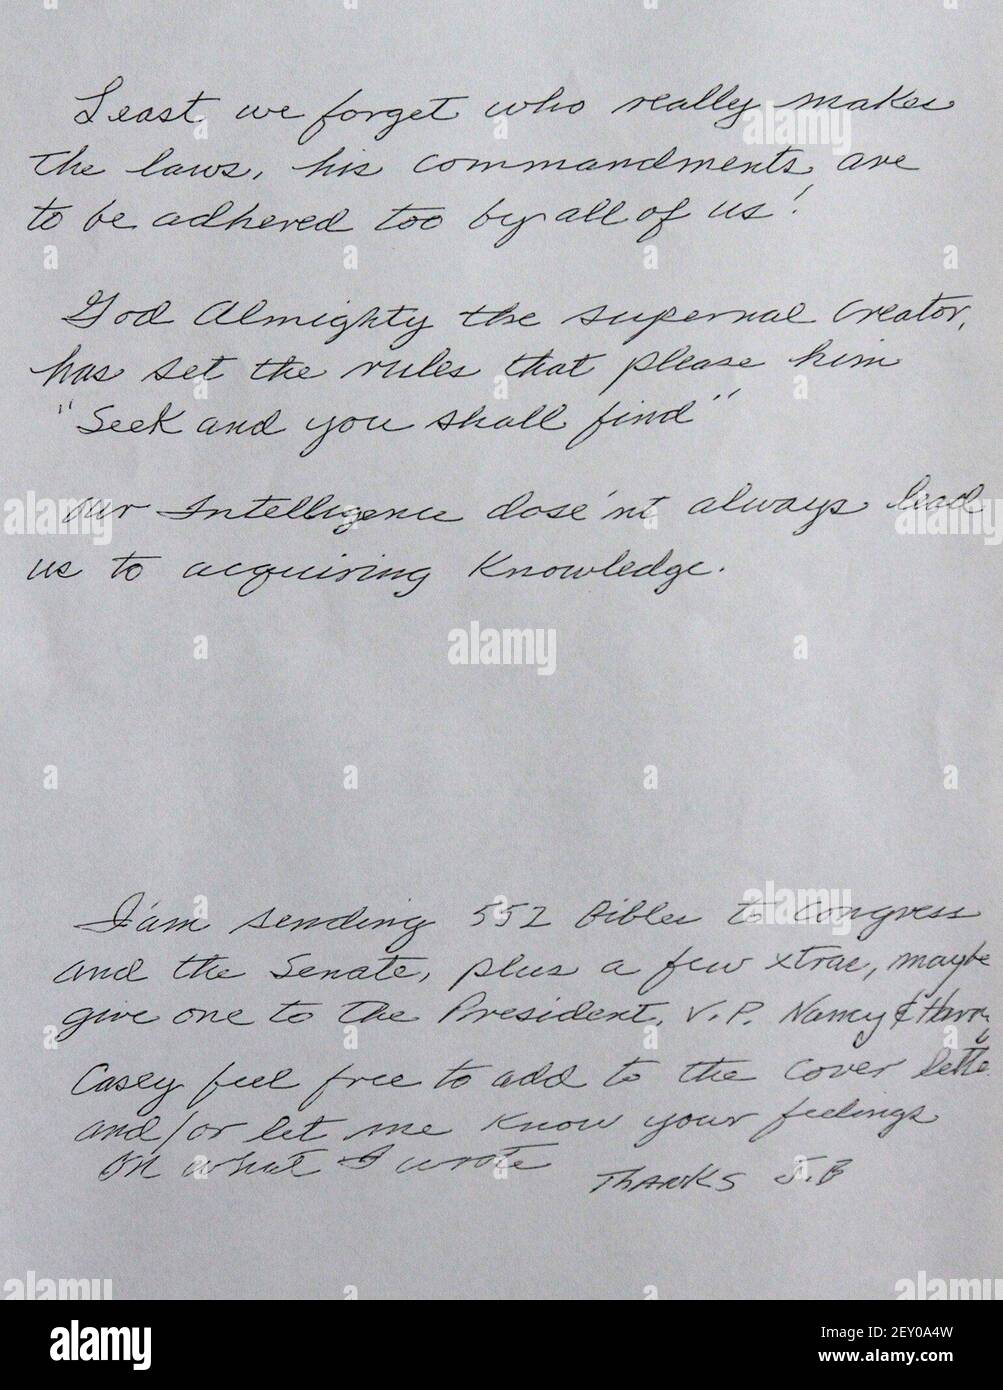 Least we forget who really makes
the laws, his commandments are
to be adhered too by all of us!
God Almighty the supernal Creator,
has set the rules that please him
"Seek and you shall find"
Our Intelligence dose'nt always lead
us to acquiring Knowledge.
I'am sending 552 Bibles to Congress
and the Senate, plus a few xtrae, maybe
give one to the President, V.P. Nancy &
Casey feel free to add to the cover lette
and/or let me know your feelings
on what I wrote
Thanks J.B
alamy
Image ID: 2EY0A4W
www.alamy.com